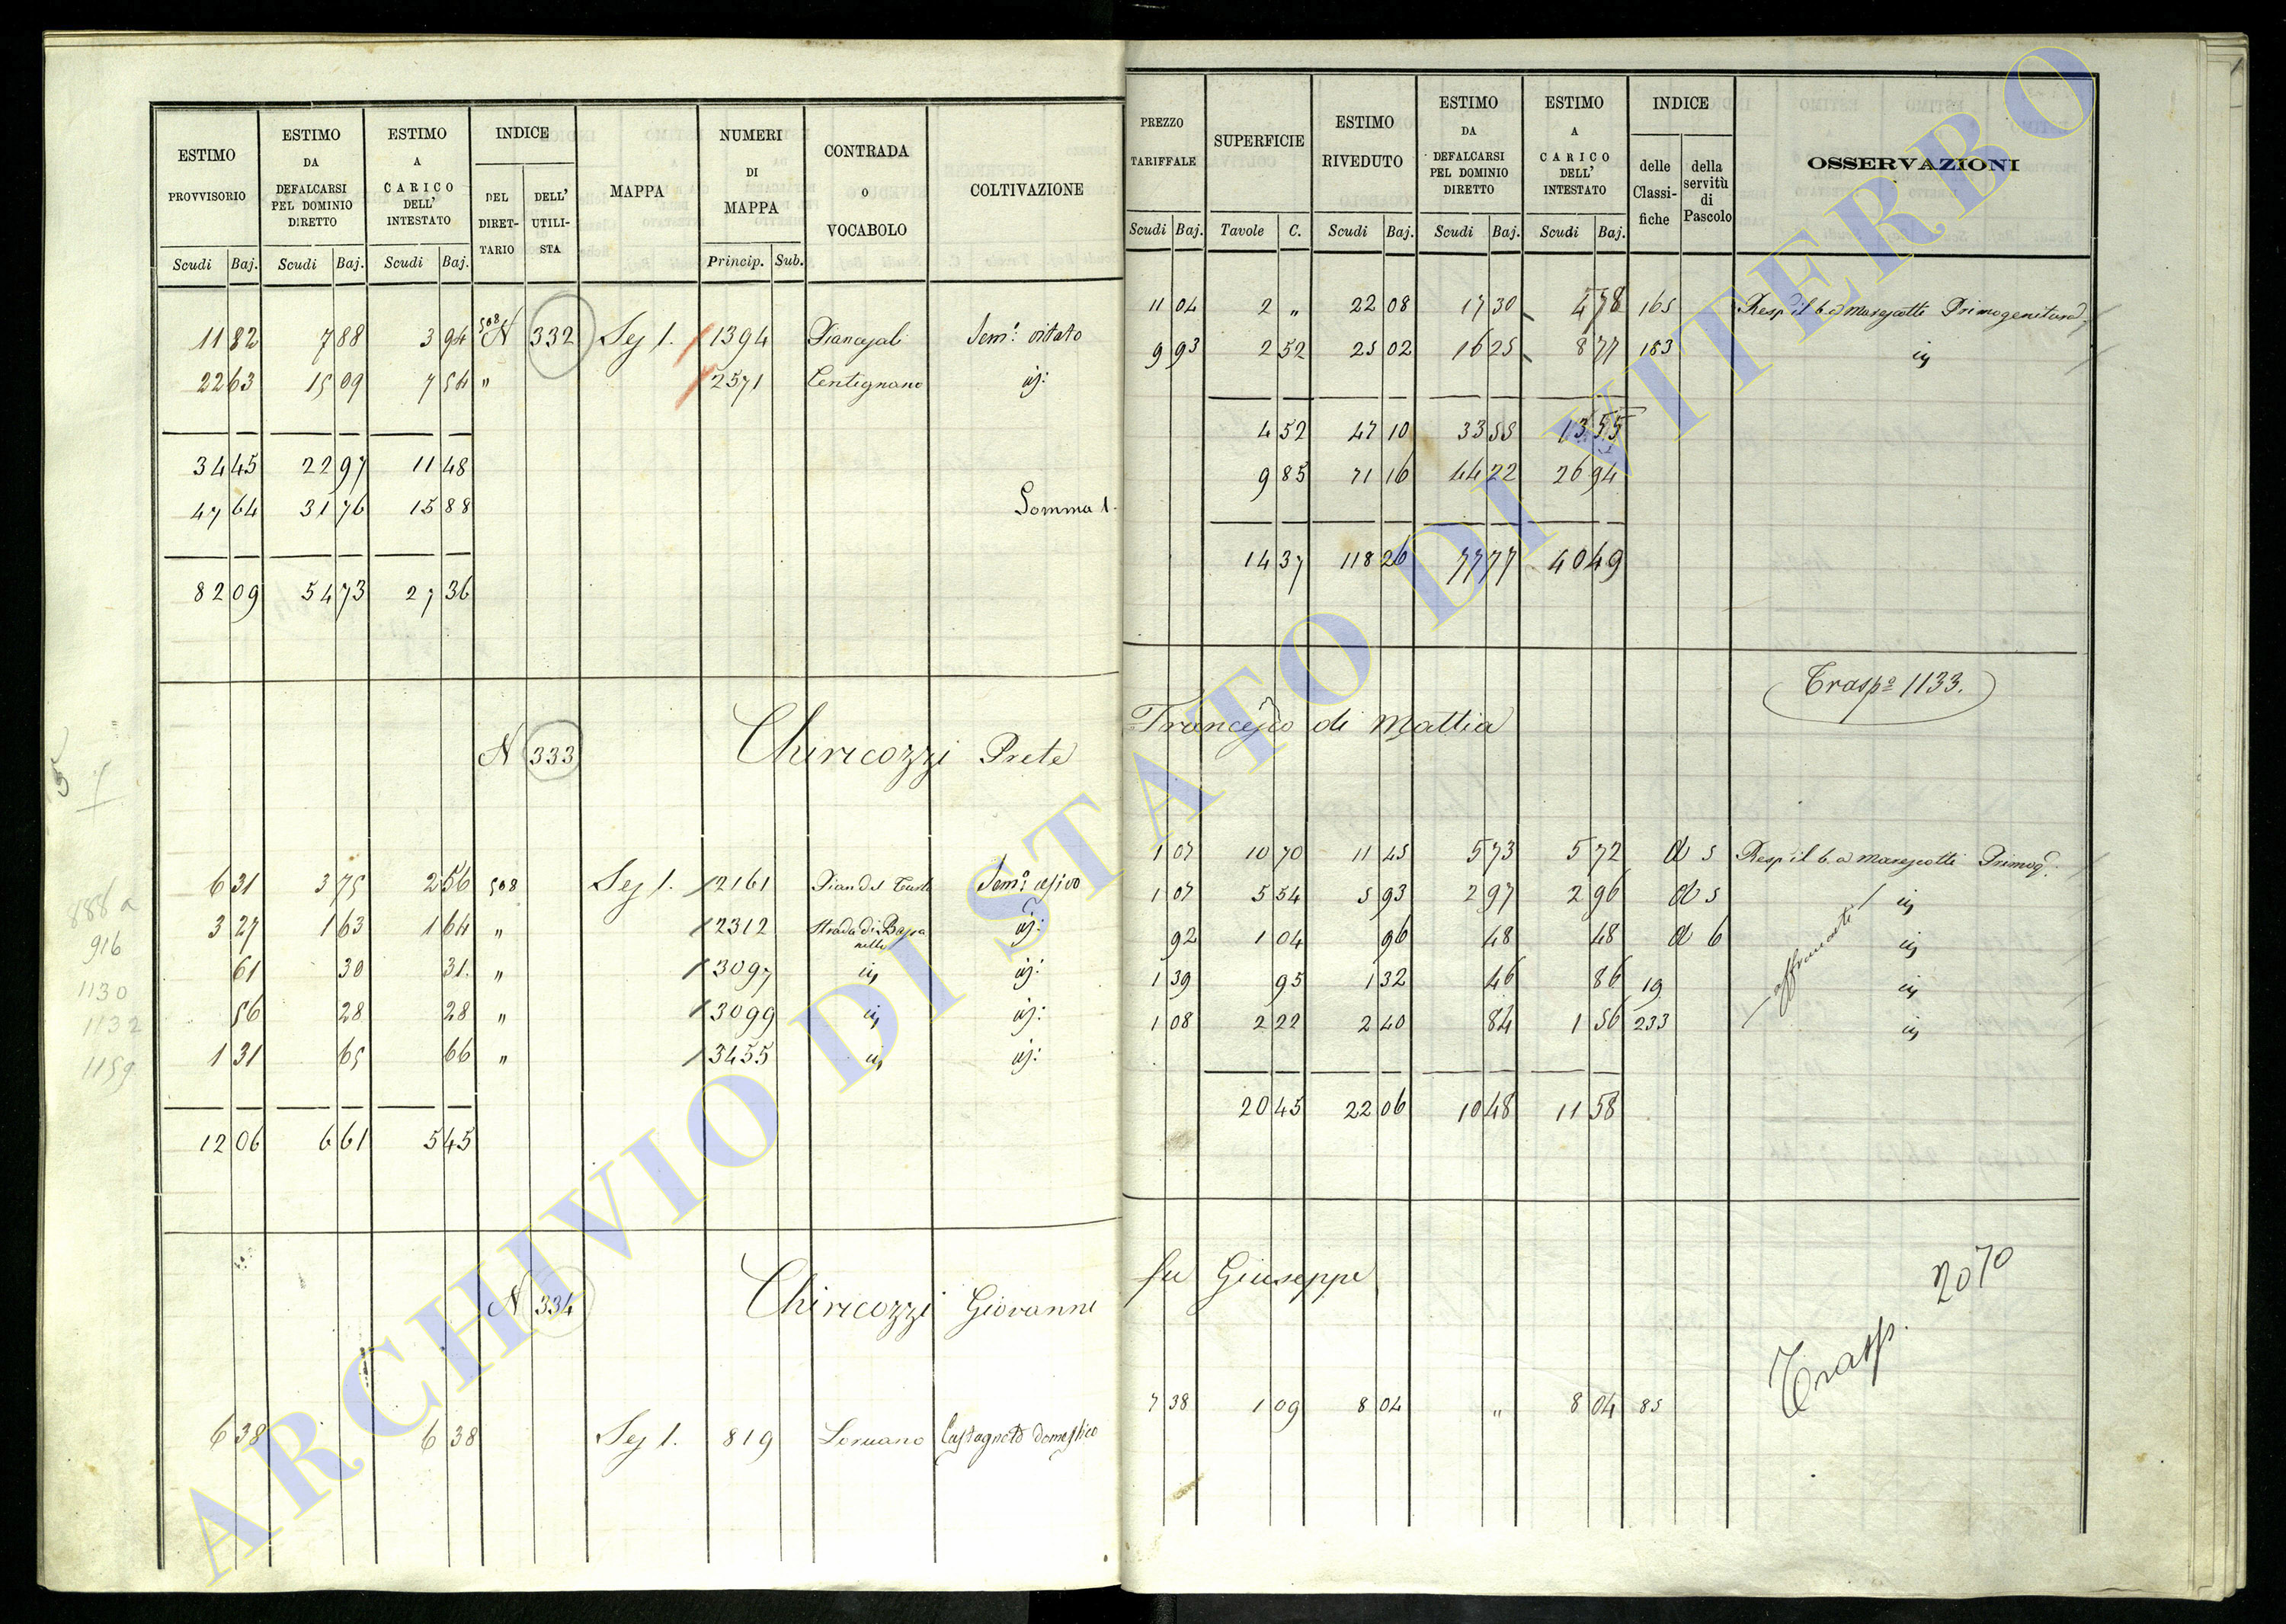 ESTIMO PROVVISORIO | ESTIMO DA DEFALCARSI PEL DOMINIO DIRETTO | ESTIMO A CARICO DELL' INTESTATO | INDICE DEL DIRETTARIO | DELL' UTILISTA | MAPPA | NUMERI DI MAPPA | CONTRADA O VOCABOLO | COLTIVAZIONE
Scudi Baj. | Scudi Baj. | Scudi Baj. | Princip. Sub.
11 82 | 7 88 | 3 94 | 508 N 332 | Sez 1. | 1394 | | Sem.º vitato
22 63 | 15 09 | 7 54 | " | 2571 | Centignano | id:
34 45 | 22 97 | 11 48
47 64 | 31 76 | 15 88 | Somma 1.
82 09 | 54 73 | 27 36
N 333 | Chiricozzi Prete
6 31 | 3 75 | 2 56 | 508 | Sez 1. | 2161 | Pian del | Sem.º
3 27 | 1 63 | 1 64 | " | 2312 | Strada di Bassanello | id:
61 | 30 | 31. | " | 3097 | id | id:
56 | 28 | 28 | " | 3099 | id | id:
1 31 | 65 | 66 | " | 3455 | id | id:
12 06 | 6 61 | 5 45
888 a
916
1130
1132
1159
N 334 | Chiricozzi Giovanni
6 38 | 6 38 | Sez 1. | 819 | | Castagneto domestico
PREZZO TARIFFALE | SUPERFICIE | ESTIMO RIVEDUTO | ESTIMO DA DEFALCARSI PEL DOMINIO DIRETTO | ESTIMO A CARICO DELL' INTESTATO | INDICE delle Classifiche | della servitù di Pascolo | OSSERVAZIONI
Scudi Baj. | Tavole C. | Scudi Baj. | Scudi Baj. | Scudi Baj.
11 04 | 2 " | 22 08 | 17 30 | 4 78 | 165 | Marescotti Primogenitura
9 93 | 2 52 | 25 02 | 16 25 | 8 77 | 183 | id
4 52 | 47 10 | 33 55 | 13 55
9 85 | 71 16 | 44 22 | 26 94
14 37 | 118 26 | 77 77 | 40 49
Trasp.º 1133.
Francesco di Mattia
1 07 | 10 70 | 11 45 | 5 73 | 5 72 | d 5 | Marescotti Primog.
1 07 | 5 54 | 5 93 | 2 97 | 2 96 | d 5 | id
92 | 1 04 | 96 | 48 | 48 | d 6 | id
1 39 | 95 | 1 32 | 46 | 86 | 19 | id
1 08 | 2 22 | 2 40 | 84 | 1 56 | 233 | id
affrancati
20 45 | 22 06 | 10 48 | 11 58
fu Giuseppe
Trasp. 2070
7 38 | 1 09 | 8 04 | " | 8 04 | 85
ARCHIVIO DI STATO DI VITERBO